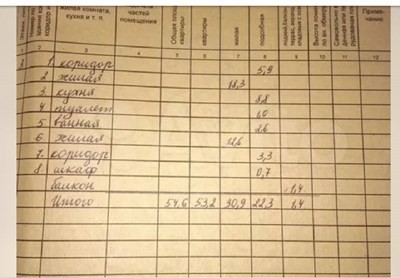 жилая комната, кухня и т. п.
частей помещения
Общая площ
квартиры
квартиры
жилая
подсобная
Высота поме
по вн. обмеру
Самовольно
Приме-
чание
2 3 4 5 6 7 8 9 10 11 12
1. коридор 5,9
2 жилая 18,3
3. кухня 8,8
4 туалет 1,0
5 ванная 2,6
6. жилая 12,6
7. коридор 3,3
8. шкаф 0,7
балкон 1,4
Итого 54,6 53,2 30,9 22,3 1,4